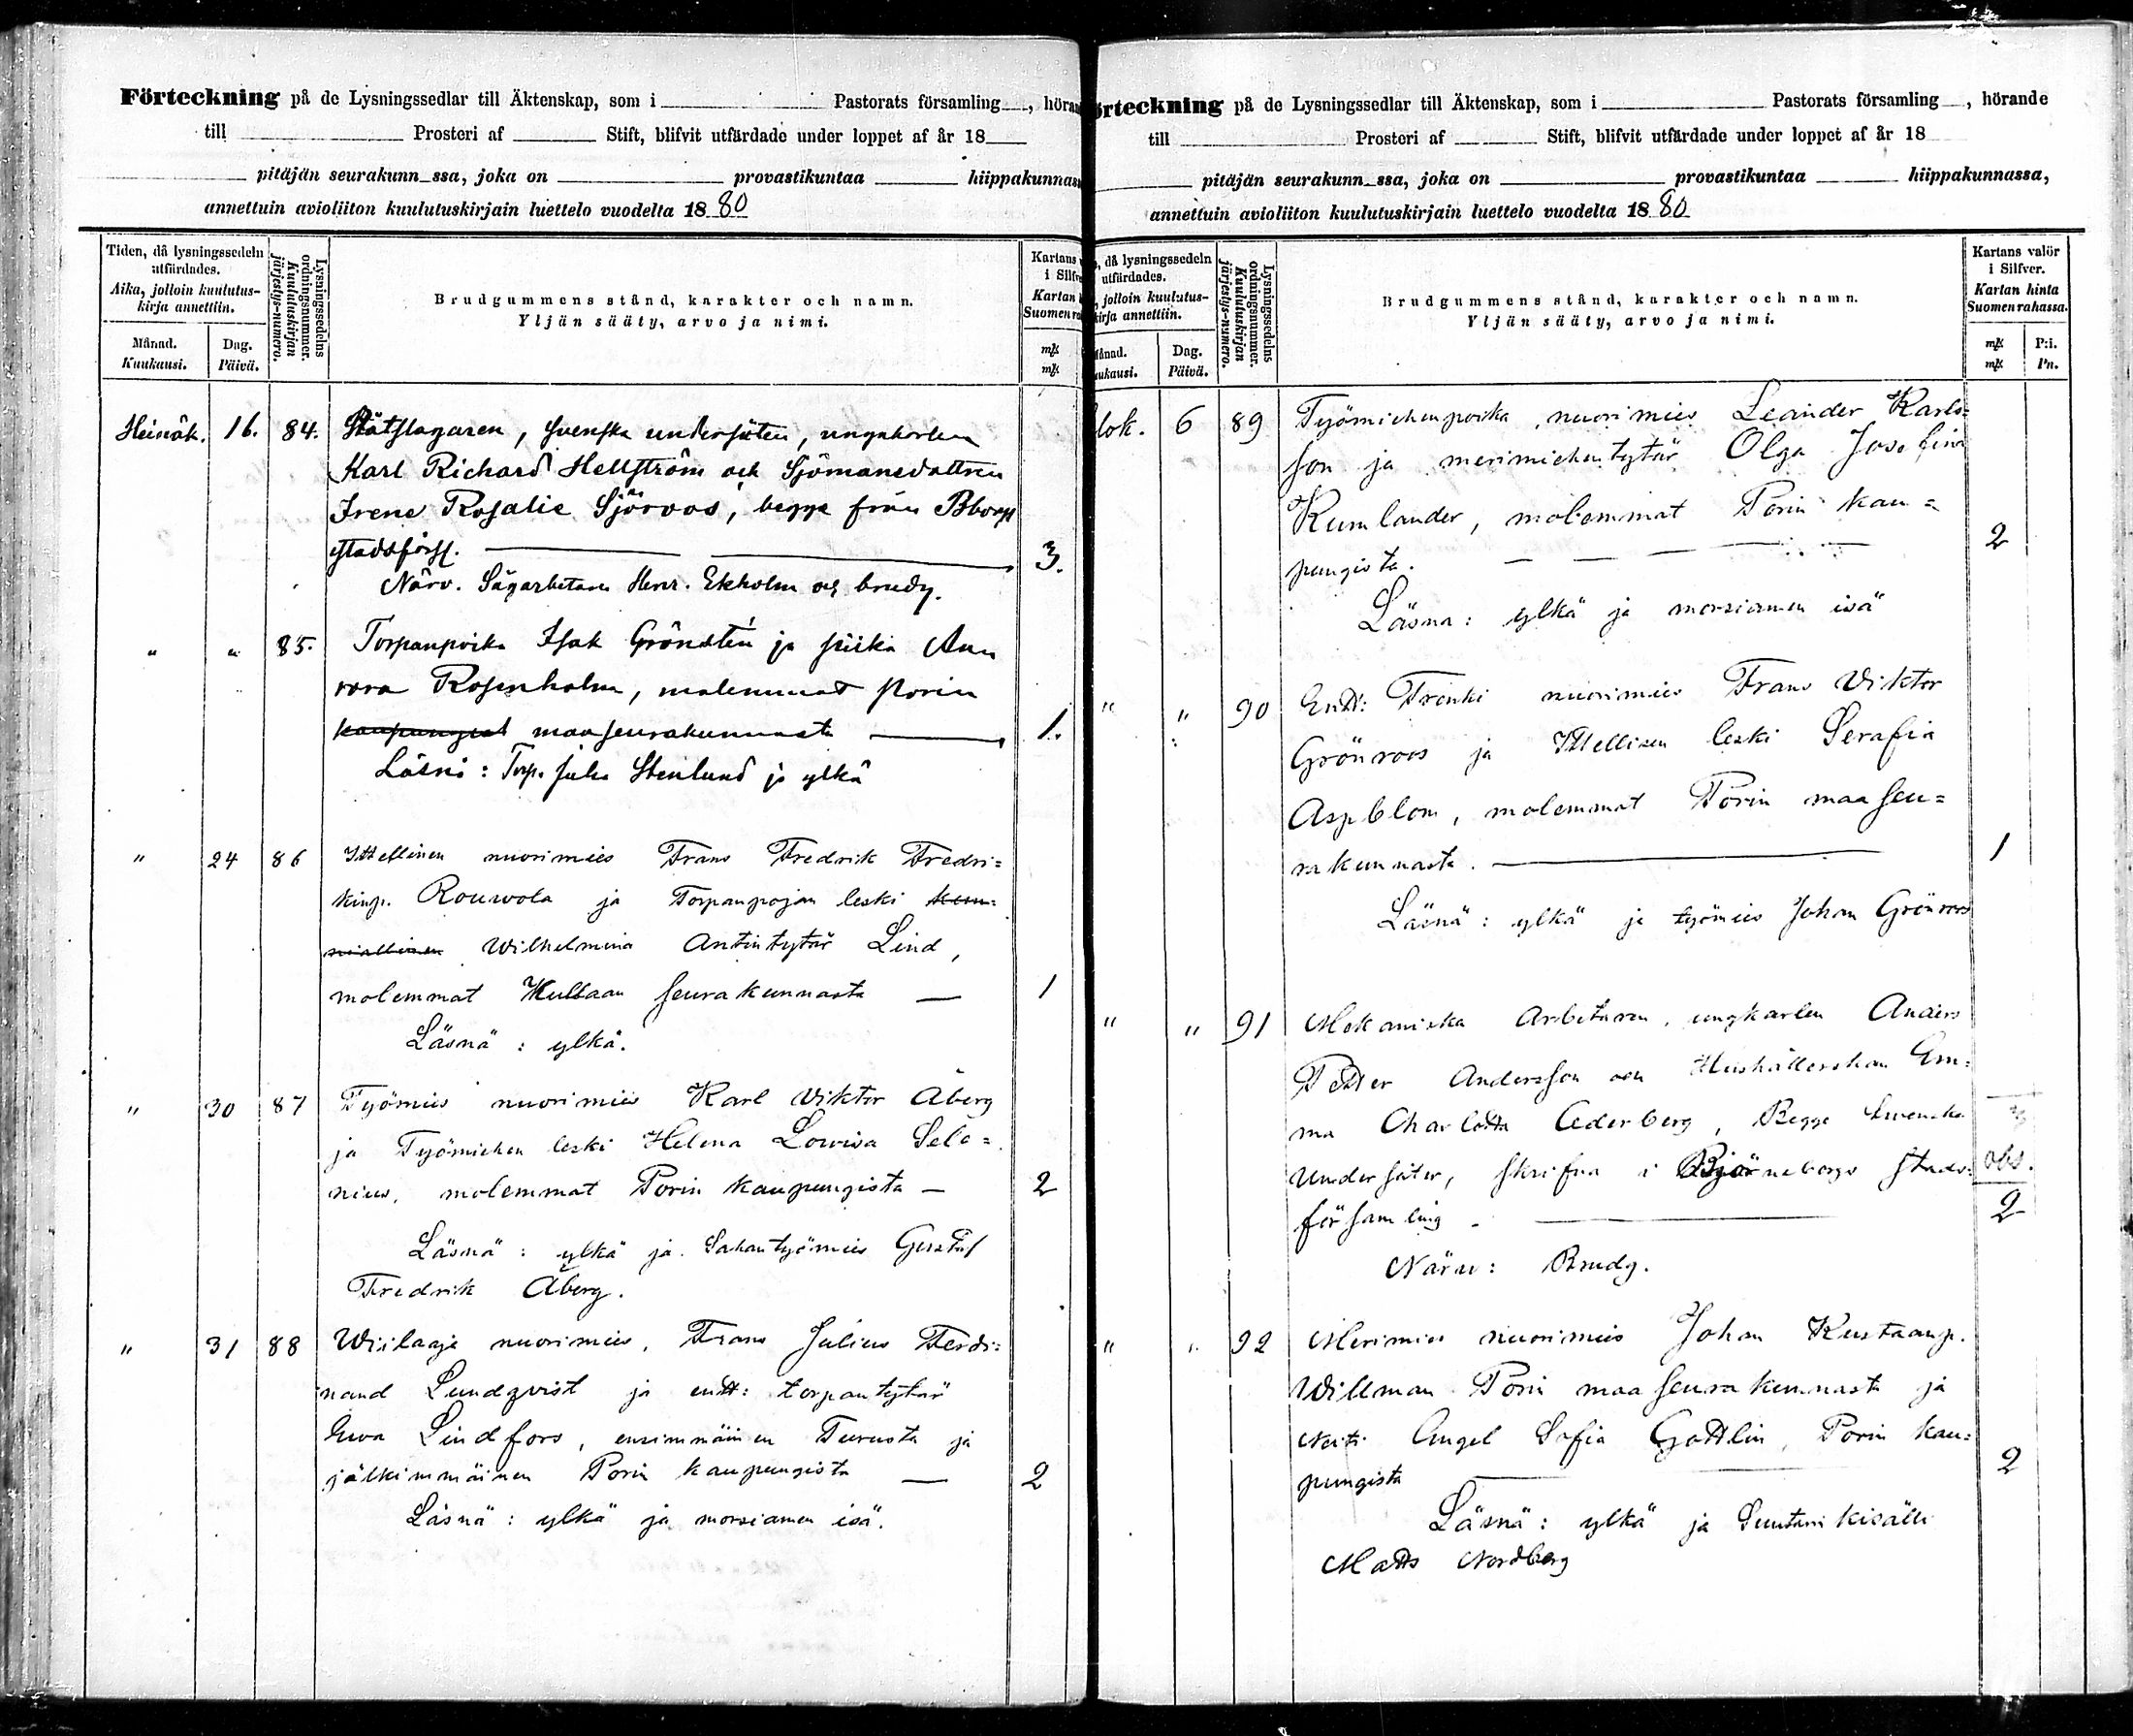 Förteckning på de Lysningssedlar till Äktenskap, som i Pastorats församling, höran
till Prosteri af Stift, blifvit utfärdade under loppet af år 18
pitäjän seurakunn_ssa, joka on provastikuntaa hiippakunnas
annettuin avioliiton kuulutuskirjain luettelo vuodelta 1880
Tiden, då lysningssedeln utfärdades.
Aika, jolloin kuulutus-
kirja annettiin.
Månad.
Kuukausi.
Dag.
Päivä.
Lysningssedelns
ordningsnummer.
Kuulutuskirjan
järjestys-numero.
Brudgummens stånd, karakter och namn.
Yljän sääty, arvo ja nimi.
Kartans
i Silfv
Kartan
Suomen ra
mk
mk
Heinäk. 16. 84. svenska undersåten, ungkarlen
Karl Richard Hellström och Sjömansdottren
Irene Rosalie Sjöroos, begge från Bborgs
stadsförs. 3.
Närv. Sågarbetaren Henr. Ekholm och brudg.
" " 85. Torpanpoika Isak Grönstén ja piika Au
rora Rosenholm, molemmat Porin
kaupungist maaseurakunnasta 1.
Läsnä: Torp. Juha Stenlund ja ylkä
" 24 86 Itsellinen nuorimies Frans Fredrik Fredri=
kinp. Rouwola ja Torpanpojan leski
Wilhelmina Antintytär Lind,
molemmat Kullaan seurakunnasta — 1
Läsnä: ylkä.
" 30 87 Työmies nuorimies Karl Viktor Åberg
ja Työmiehen leski Helena Lowisa Sele=
nius, molemmat Porin kaupungista — 2
Läsnä: ylkä ja Sahantyömies Gustaf
Fredrik Åberg.
" 31 88 Wiilaaja nuorimies, Frans Julius Ferdi=
nand Lundqvist ja entt: torpantytär
Ewa Lindfors, ensimmäinen Turusta ja
jälkimmäinen Porin kaupungista — 2
Läsnä: ylkä ja morsiamen isä.
örteckning på de Lysningssedlar till Äktenskap, som i Pastorats församling, hörande
till Prosteri af Stift, blifvit utfärdade under loppet af år 18
pitäjän seurakunn_ssa, joka on provastikuntaa hiippakunnassa,
annettuin avioliiton kuulutuskirjain luettelo vuodelta 1880
, då lysningssedeln
utfärdades.
, jolloin kuulutus-
kirja annettiin.
Månad.
ukausi.
Dag.
Päivä.
Lysningssedelns
ordningsnummer.
Kuulutuskirjan
järjestys-numero.
Brudgummens stånd, karakter och namn.
Yljän sääty, arvo ja nimi.
Kartans valör
i Silfver.
Kartan hinta
Suomen rahassa.
mk P:i.
mk Pn.
lok. 6 89 Työmiehenpoika, nuorimies Leander Karls=
son ja merimiehentytär Olga Josefina
Kumlander, molemmat Porin kau=
pungista. 2
Läsna: ylkä ja morsiamen isä
" " 90 Entt: Trenki nuorimies Frans Viktor
Grönroos ja Itsellisen leski Serafia
Aspblom, molemmat Porin maaseu=
rakunnasta. 1
Läsnä: ylkä ja työmies Johan Grönroos
" " 91 Mekaniska Arbetaren, ungkarlen Anders
Petter Andersson och Hushållerskan Em=
ma Charlotta Cederberg, Begge Swenska
Undersåter, skrifna i Björneborgs stads= obs.
församling. 2
Närw: Brudg.
" " 92 Merimies nuorimies Johan Kustaanp.
Willman Porin maaseurakunnasta ja
Neiti Engel Sofia Gottlin, Porin kau=
pungista 2
Läsnä: ylkä ja Suutarikisälli
Matts Nordberg